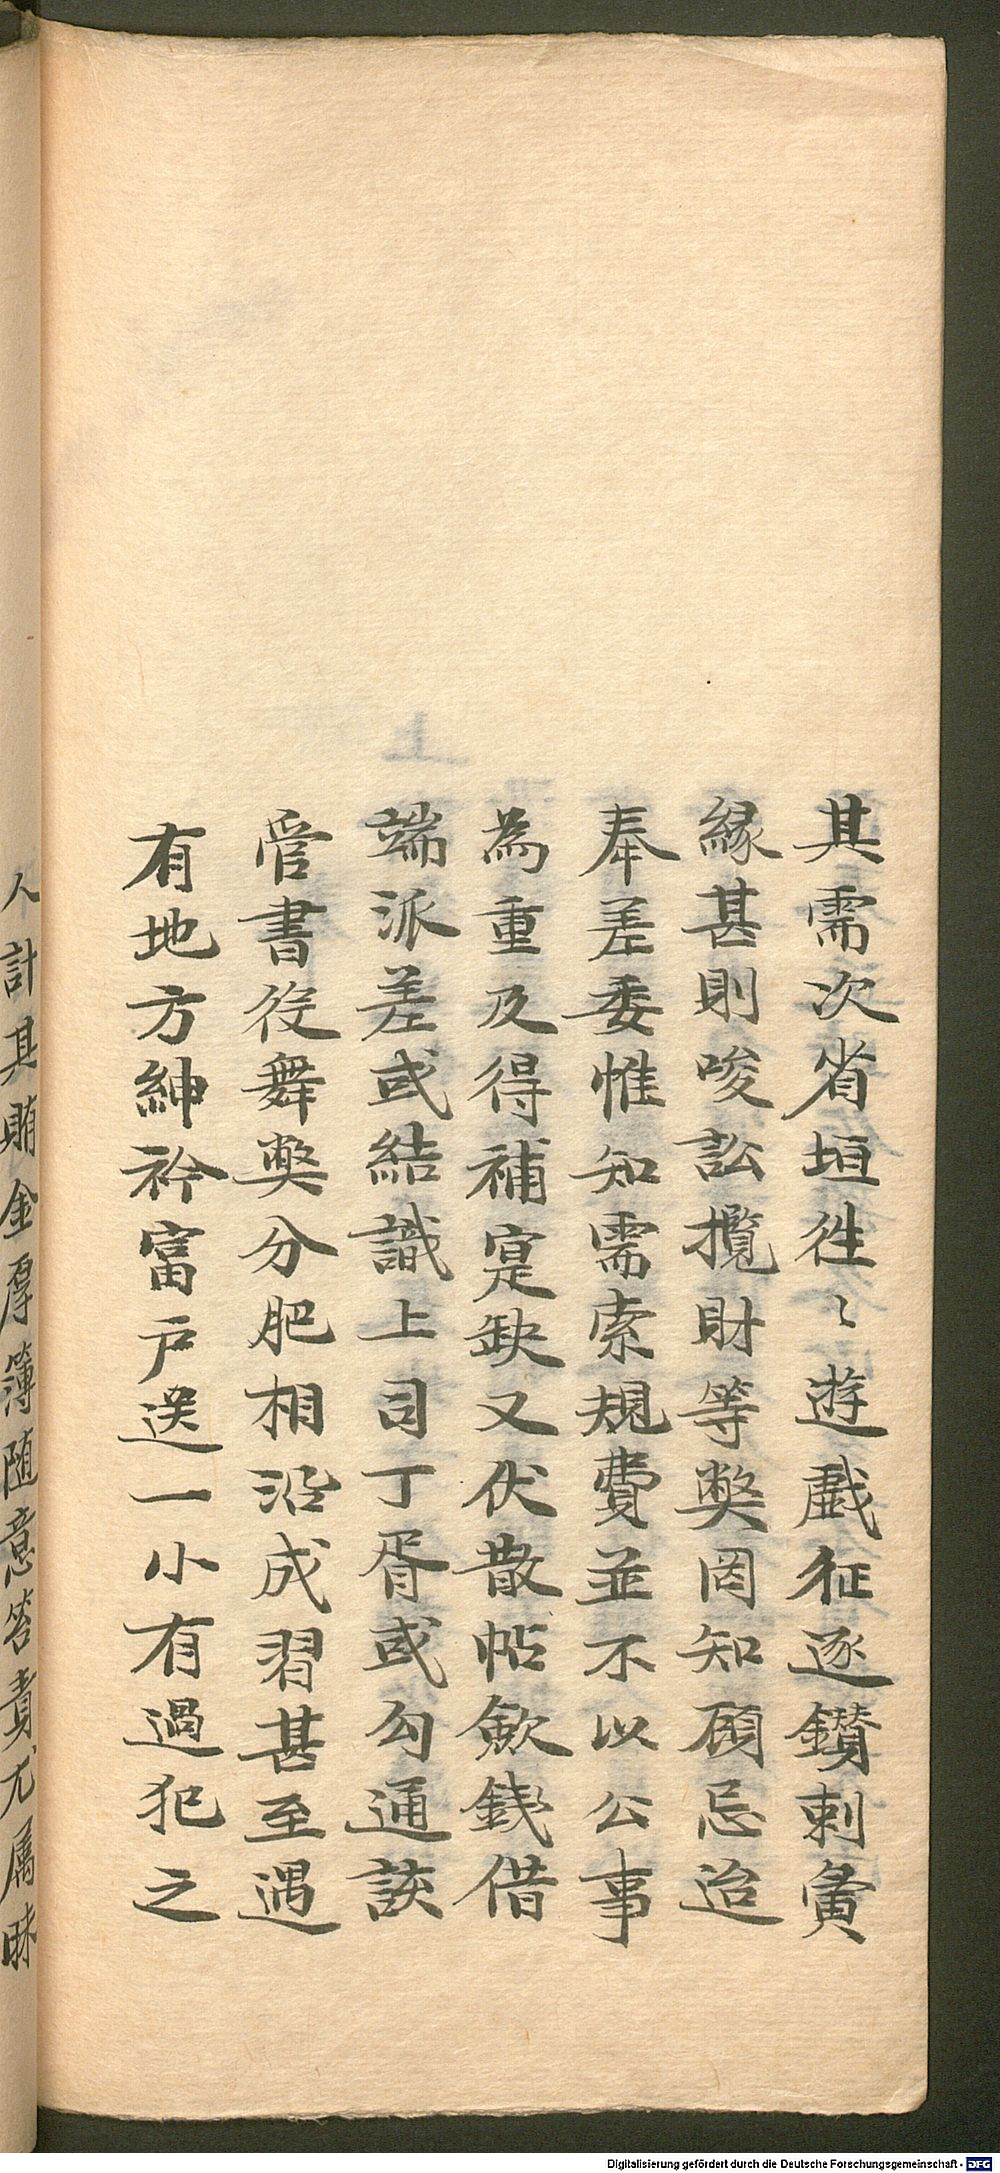 其需次省垣徃〻遊戱征逐鑽刺夤
緣甚則唆訟攬財等獘罔知顧忌迨
奉差委惟知需索規費並不以公事
為重及得補寔缺又伏散帖歛錢借
端派差或結識上司丁胥或勾通該
管書役舞獘分肥相沿成習甚至遇
有地方紳衿富戶送一小有過犯之
人計其賄金厚簿随意笞責尤属昧
上
Digitalisierung gefördert durch die Deutsche Forschungsgemeinschaft - DFG